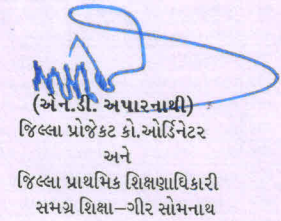 (એન.ડી. અપારનાથી)
જિલ્લા પ્રોજેકટ કો.ઓર્ડિનેટર
અને
જિલ્લા પ્રાથમિક શિક્ષણાધિકારી
સમગ્ર શિક્ષા–ગીર સોમનાથ